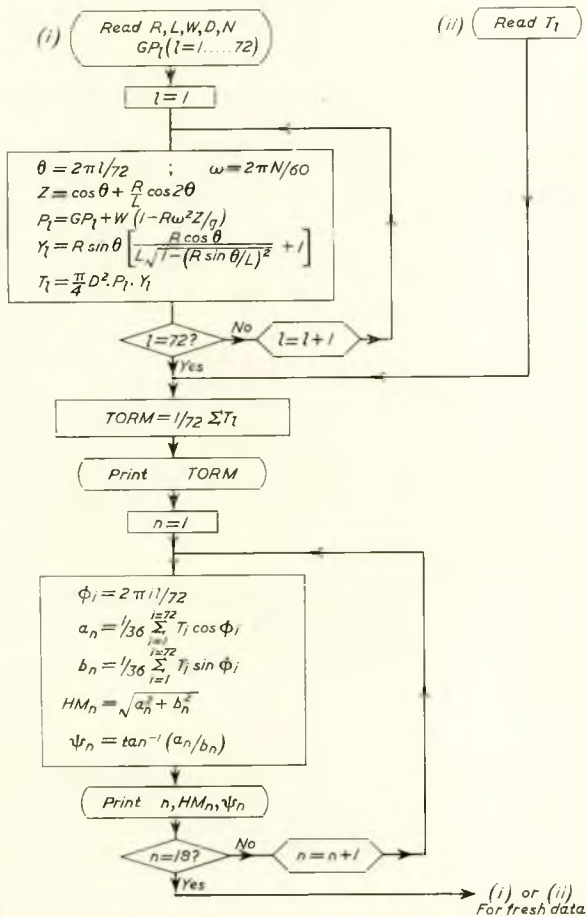 (i) Read R, L, W, D, N
GP_l (l = 1.....72)
(ii) Read T_l
l = 1
θ = 2πl/72 ; ω = 2πN/60
Z = cos θ + R/L cos 2θ
P_l = GP_l + W (1 - Rω²Z/g)
Y_l = R sin θ [R cos θ / L√(1 - (R sin θ/L)²) + 1]
T_l = π/4 D². P_l. Y_l
l = 72?
No
l = l + 1
Yes
TORM = 1/72 ΣT_l
Print TORM
n = 1
ϕ_i = 2πil/72
a_n = 1/36 Σ_{i=1}^{i=72} T_i cos ϕ_i
b_n = 1/36 Σ_{i=1}^{i=72} T_i sin ϕ_i
HM_n = √(a_n² + b_n²)
ψ_n = tan⁻¹ (a_n/b_n)
Print n, HM_n, ψ_n
n = 18?
No
n = n + 1
Yes
(i) or (ii)
For fresh data